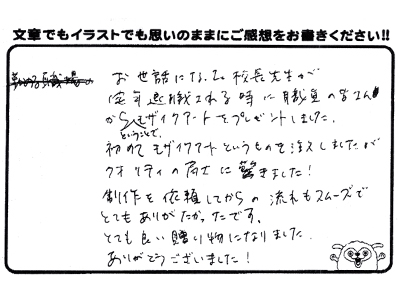 文章でもイラストでも思いのままにご感想をお書きください!!
お世話になった校長先生が
定年退職される時に職員の皆さん
からモザイクアートをプレゼントしました。
ということで、
初めてモザイクアートというものを注文しましたが
クオリティの高さに驚きました!
制作を依頼してからの流れもスムーズで
とてもありがたかったです。
とても良い贈り物になりました。
ありがとうございました!